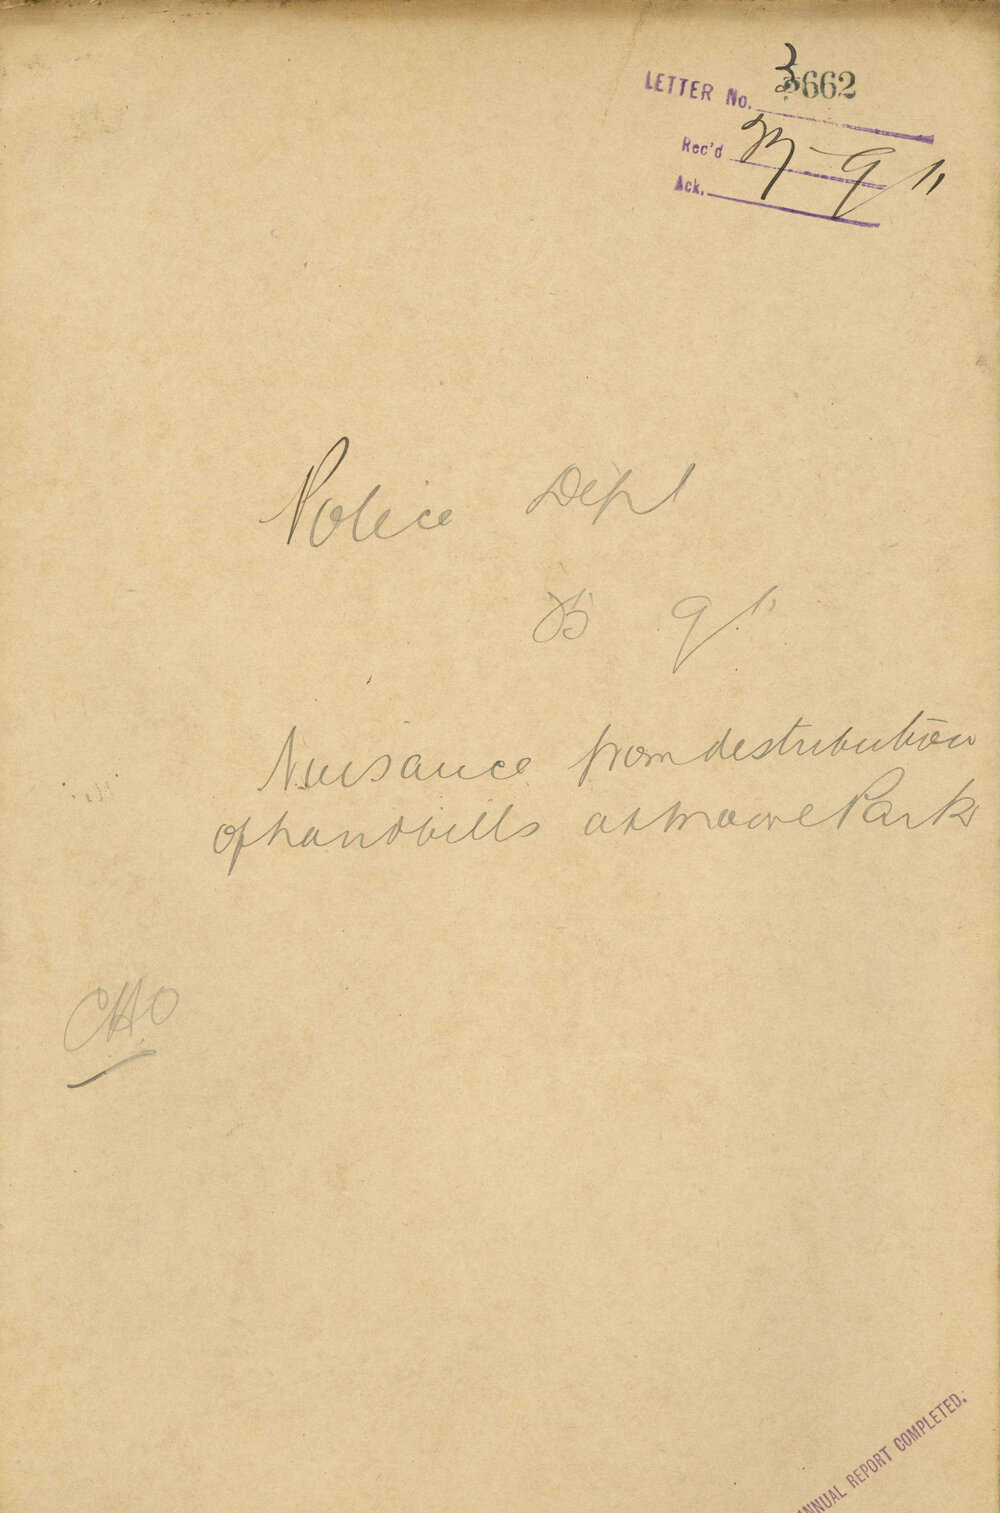 LETTER No. 3662
Rec'd 27-9/11
Ack.
Police Dept
25 9/11
Nuisance from distribution
of handbills at Moore Park
CHO
ANNUAL REPORT COMPLETED.